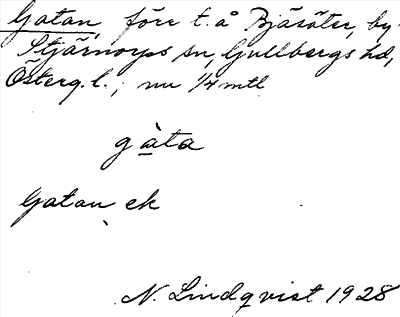 Gatan, förr t. å Bjäsäter, by
Stjärnorps sn, Gullbergs hd,
Österg. l.; nu 1/4 mtl
gata
Gatan ek
N. Lindqvist 1928